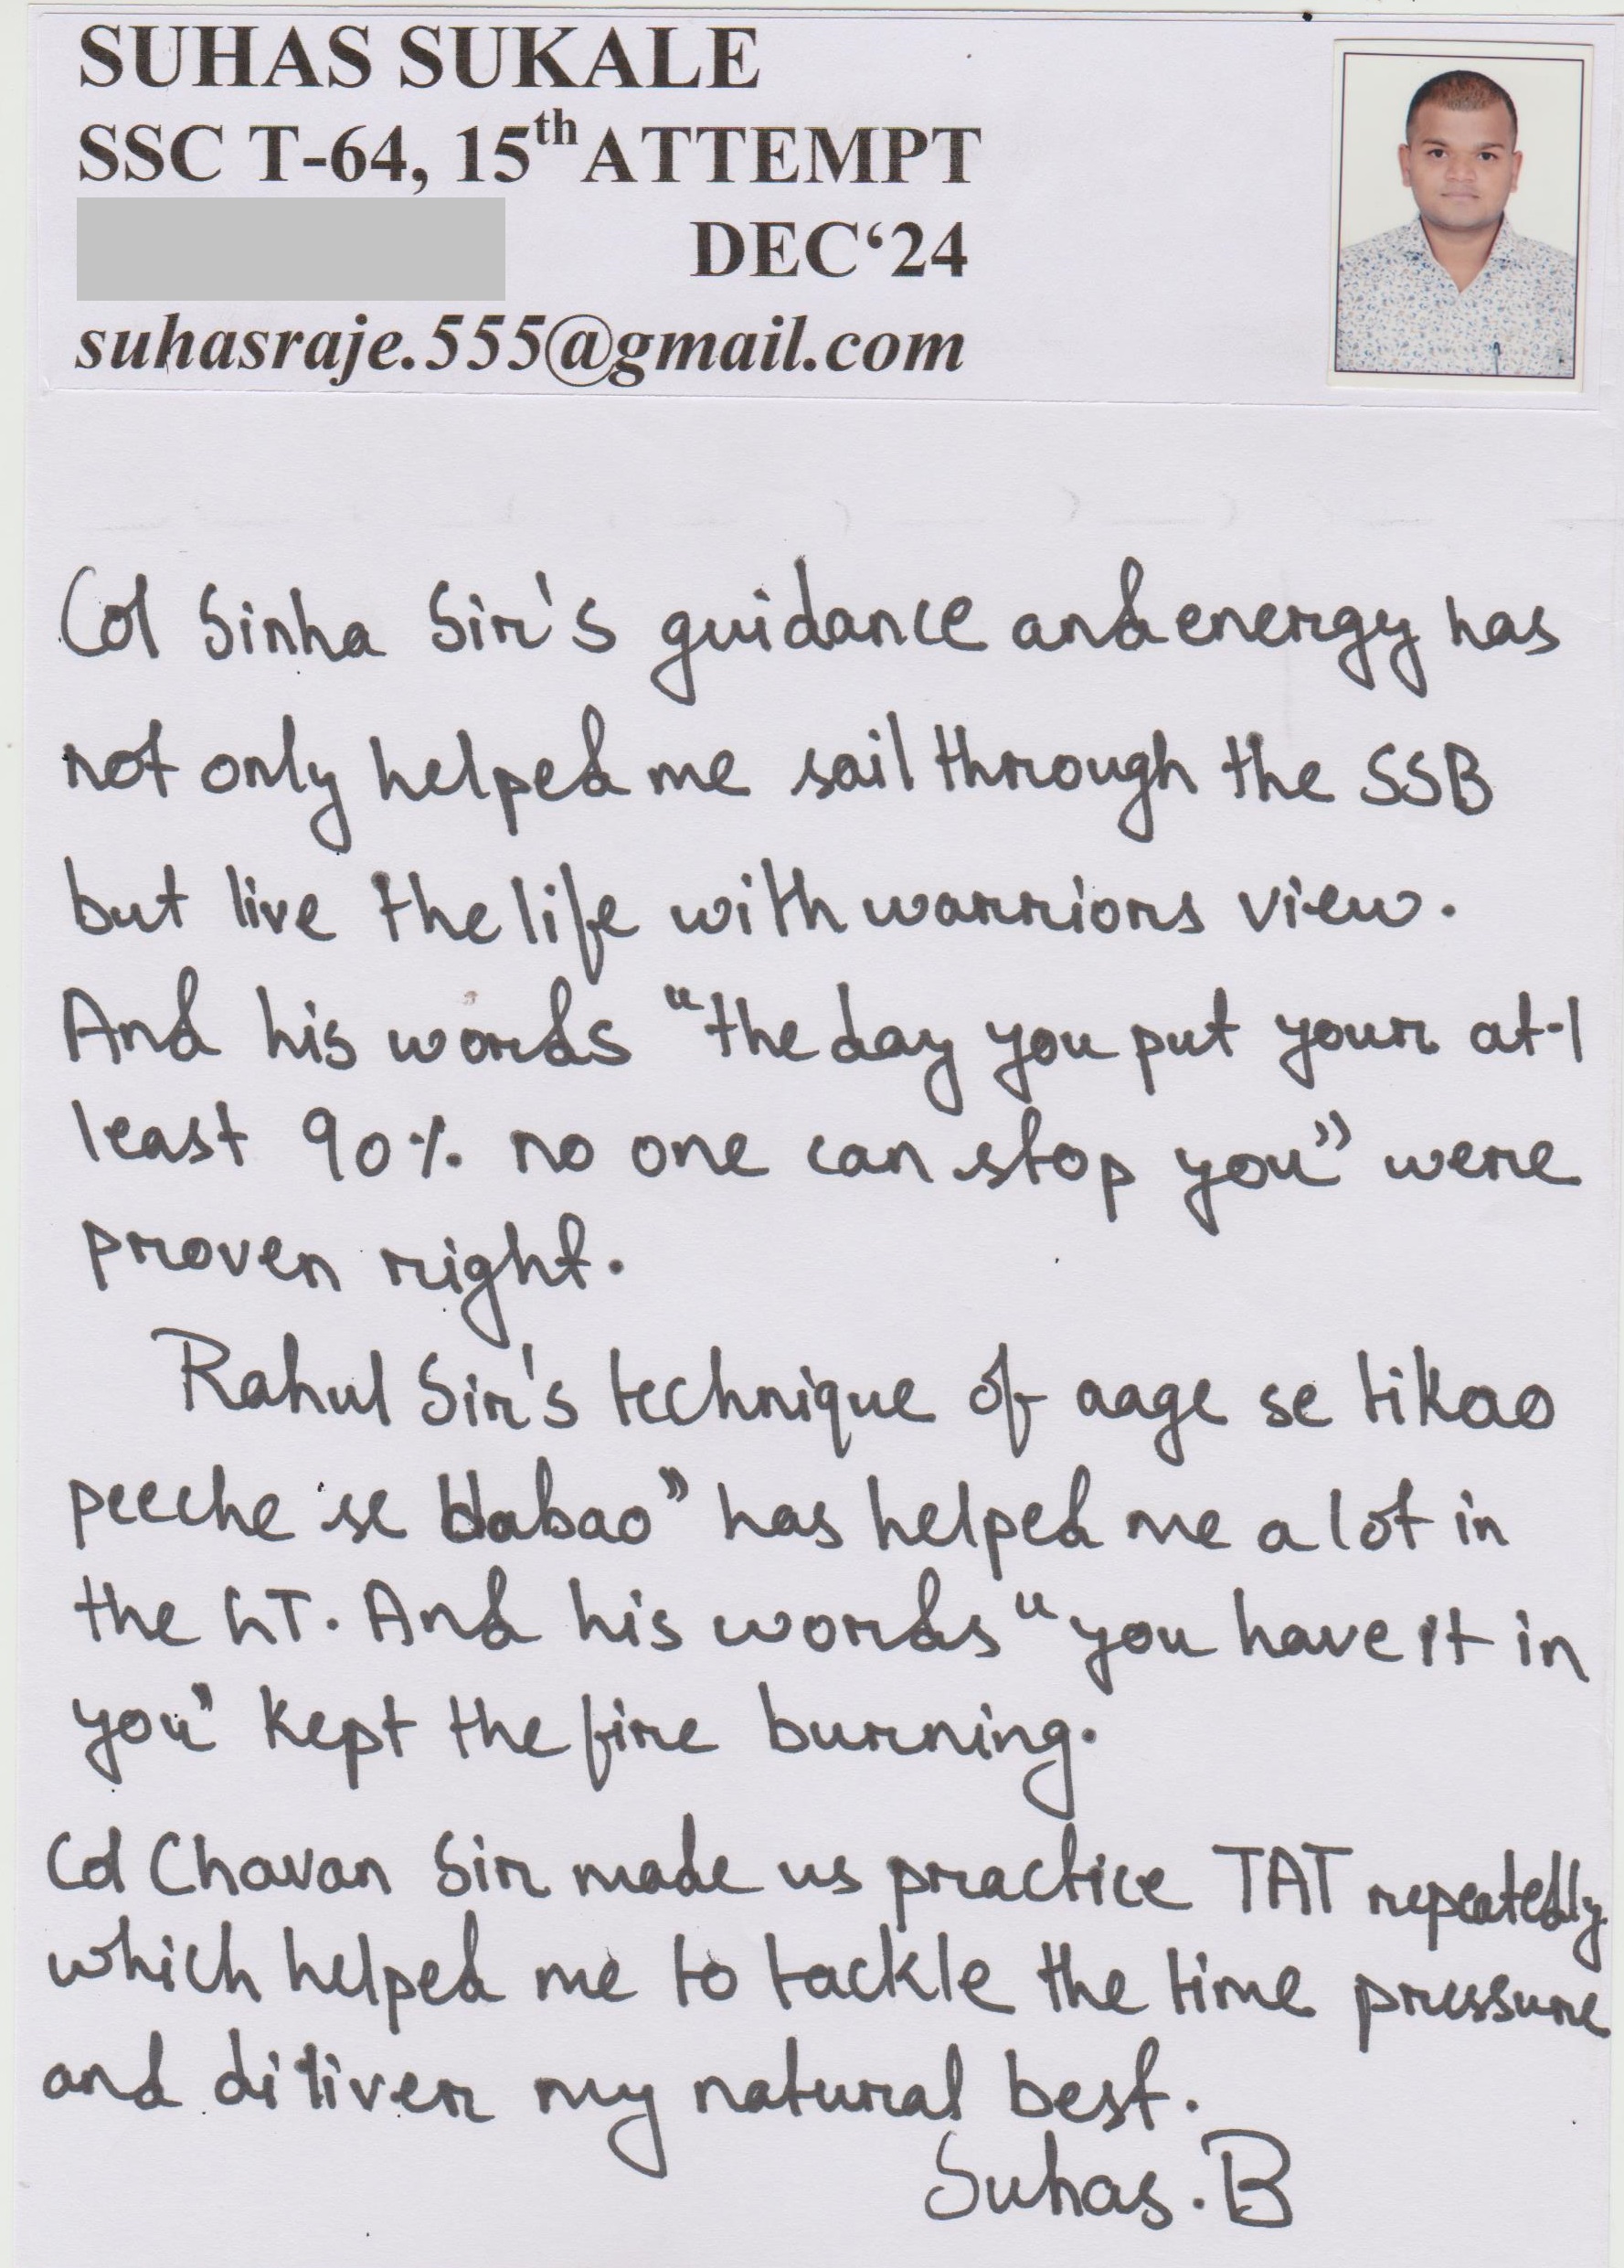 SUHAS SUKALE
SSC T-64, 15th ATTEMPT
DEC‘24
suhasraje.555@gmail.com
Col Sinha Sir's guidance and energy has
not only helped me sail through the SSB
but live the life with warriors view.
And his words "the day you put your at-l
least 90% no one can stop you" were
proven right.
Rahul Sir's technique of aage se tikao
peeche se dabao" has helped me a lot in
the GT. And his words "you have it in
you" kept the fire burning.
Col Chavan Sir made us practice TAT repeatedly
which helped me to tackle the time pressure
and diliver my natural best.
Suhas.B